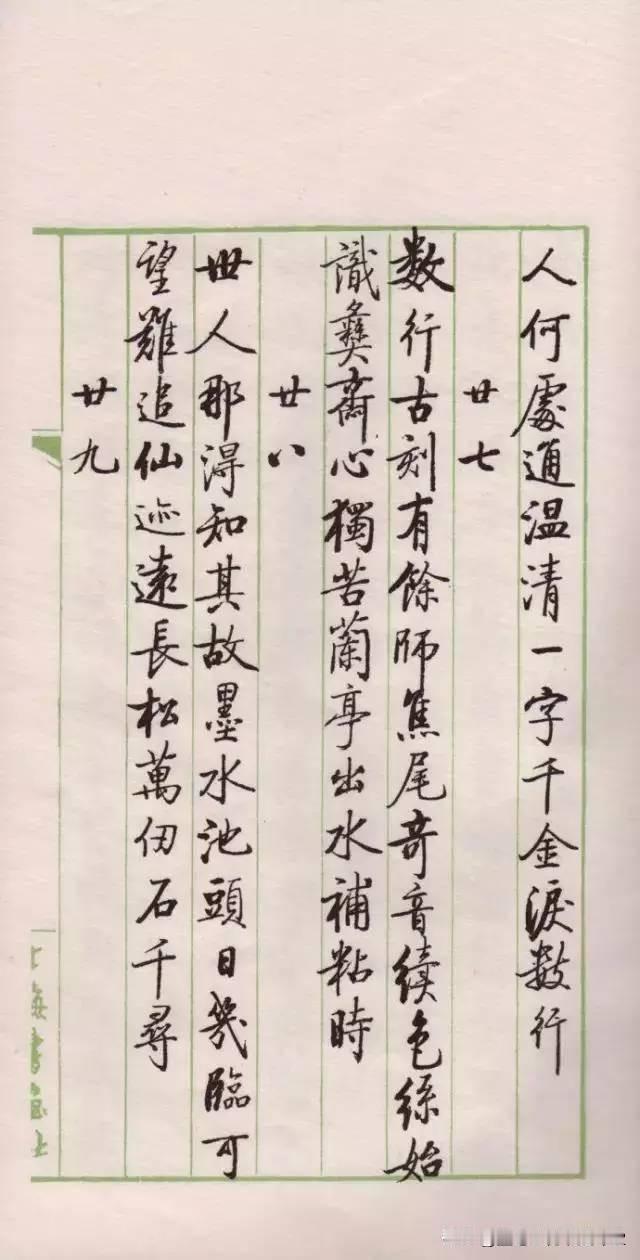 人何處通温清一字千金淚數行
廿七
数行古刻有餘師焦尾奇音續色絲始
識彝齋心獨苦蘭亭出水補粘時
廿八
世人那得知其故墨水池頭日幾臨可
望難追仙迹遠長松萬仞石千尋
廿九
上海書画社